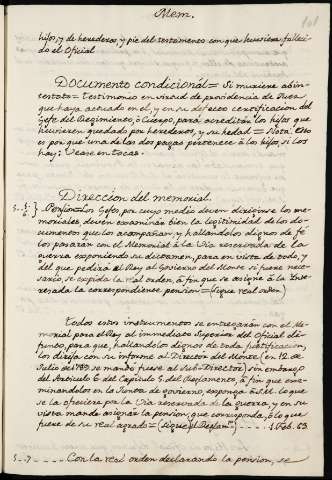 Mem.
101
hijos, y de herederos, y pie del testamento con que huviere falleci-
do el Oficial
Documento condicional = Si muriere abin-
testato = Testimonio en virtud de providencia de Juez
que haya actuado en el, y en su defecto certificacion del
Gefe del Regimiento, ò Cuerpo, para acreditar los hijos que
huvieren quedado por herederos, y su hedad = Nota: Esto
es por que una de las dos pagas pertenece à los hijos, si los
hay: Vease en tocas.
Direccion del memorial.
Pension = Los Gefes por cuyo medio deven dirigirse los me-
moriales deven examinar bien la legitimidad de los do-
cumentos que los acompañan, y hallandolos dignos de fé
los pasaràn con el Memorial à la Via reservada de la
Guerra exponiendo su dictamen, para en vista de todo, y
del que pedirà el Rey al Govierno del Monte si fuere nece-
sario, se expida la real orden, à fin que se asigne à la Inte-
resada la correspondiente pension = (Sigue real orden)
Todos estos instrumentos se entregaràn con el Me-
morial para el Rey al immediato Superior del Oficial di-
funto, para que, hallandolos dignos de toda justificacion,
los dirija con su informe al Director del Monte (en 12. de
Julio de 1789 se mandò fuese al Sub-Director) sin embargo
del Articulo 6 del Capitulo 5 del Reglamento, à fin que exa-
minandolos en la Junta de Govierno, exponga à S.M. lo que
se la ofreciere por la Via reservada de la guerra, y en su
vista mande asignar la pension, que corresponda, ò lo que
fuere de su real agrado = (Sigue el Reglam.to) .... 1. Feb. 63.
5 - 7 .... Con la real orden declarando la pension, se